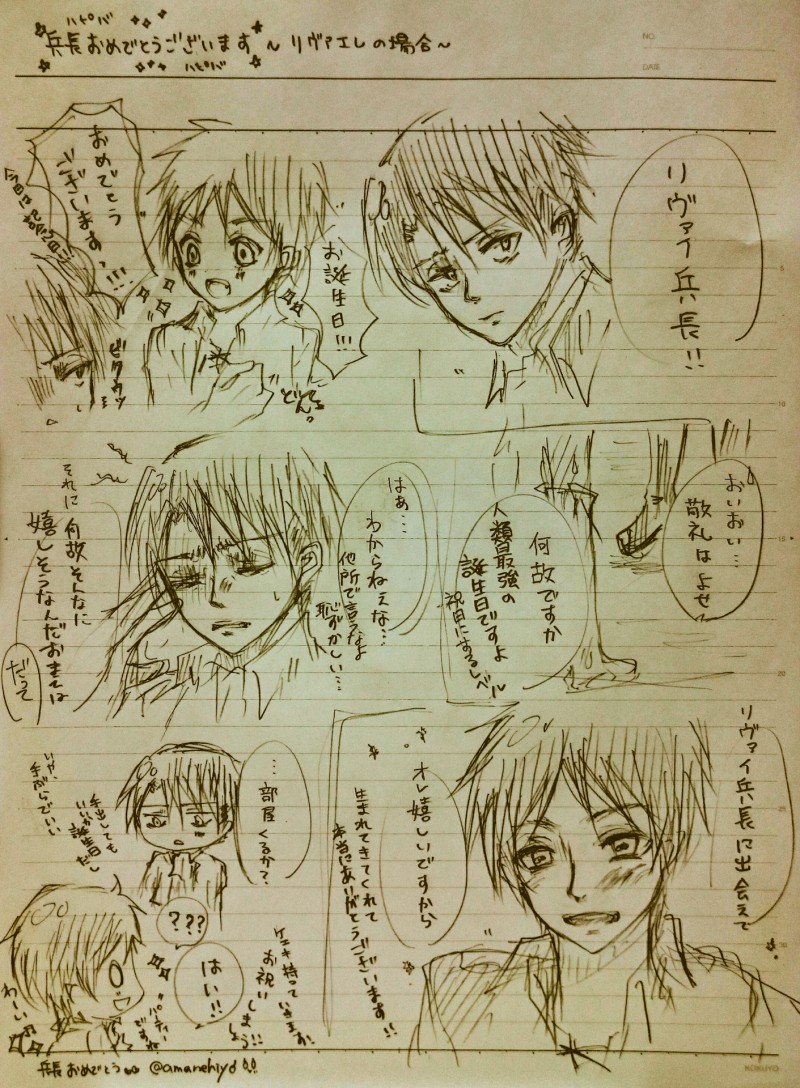 ハピバ
兵長おめでとうございます～リヴァエレの場合～
ハピバ
NO.
DATE
リヴァイ兵長!!
お誕生日!!!
おめでとう
ございますっ!!!
ビクゥッ
どどーん。
おいおい…
敬礼はよせ
何故ですか
人類最強の
誕生日ですよ
祝日にするレベル
はぁ…
わからねぇな…
他所で言うなよ
恥ずかしい…
それに何故そんなに
嬉しそうなんだおまえは
だって
リヴァイ兵長に出会えて
オレ嬉しいですから
生まれてきてくれて
本当にありがとうございます!!
…部屋
くるか?
手出しても
いいか
誕生日だし
いや、
手がらでいい
???
はい!!
ケーキ持っていきますか
お祝いしましょう!!
パーティー
ですね
わーい
兵長おめでとう @amanehiyo
KOKUYO